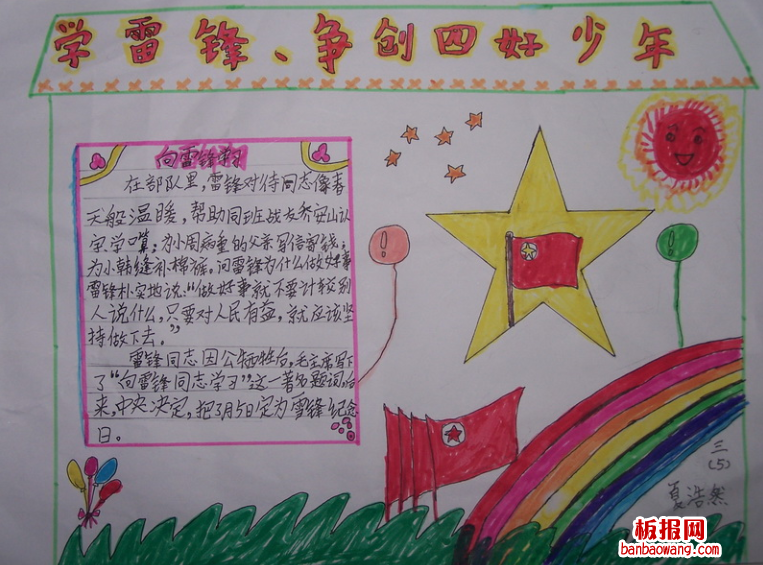 学雷锋、争创四好少年
向雷锋学习
在部队里，雷锋对待同志像春
天般温暖，帮助同班战友乔安山认
字学算；为小周病重的父亲写信寄钱；
为小韩缝补棉裤。问雷锋为什么做好事
雷锋朴实地说：“做好事就不要计较别
人说什么，只要对人民有益，就应该坚
持做下去。”
雷锋同志因公牺牲后，毛主席写下
了“向雷锋同志学习”这一著名题词，后
来，中央决定，把3月5日定为雷锋纪念
日。
三
（5）
夏浩然
板报网
banbaowang.com